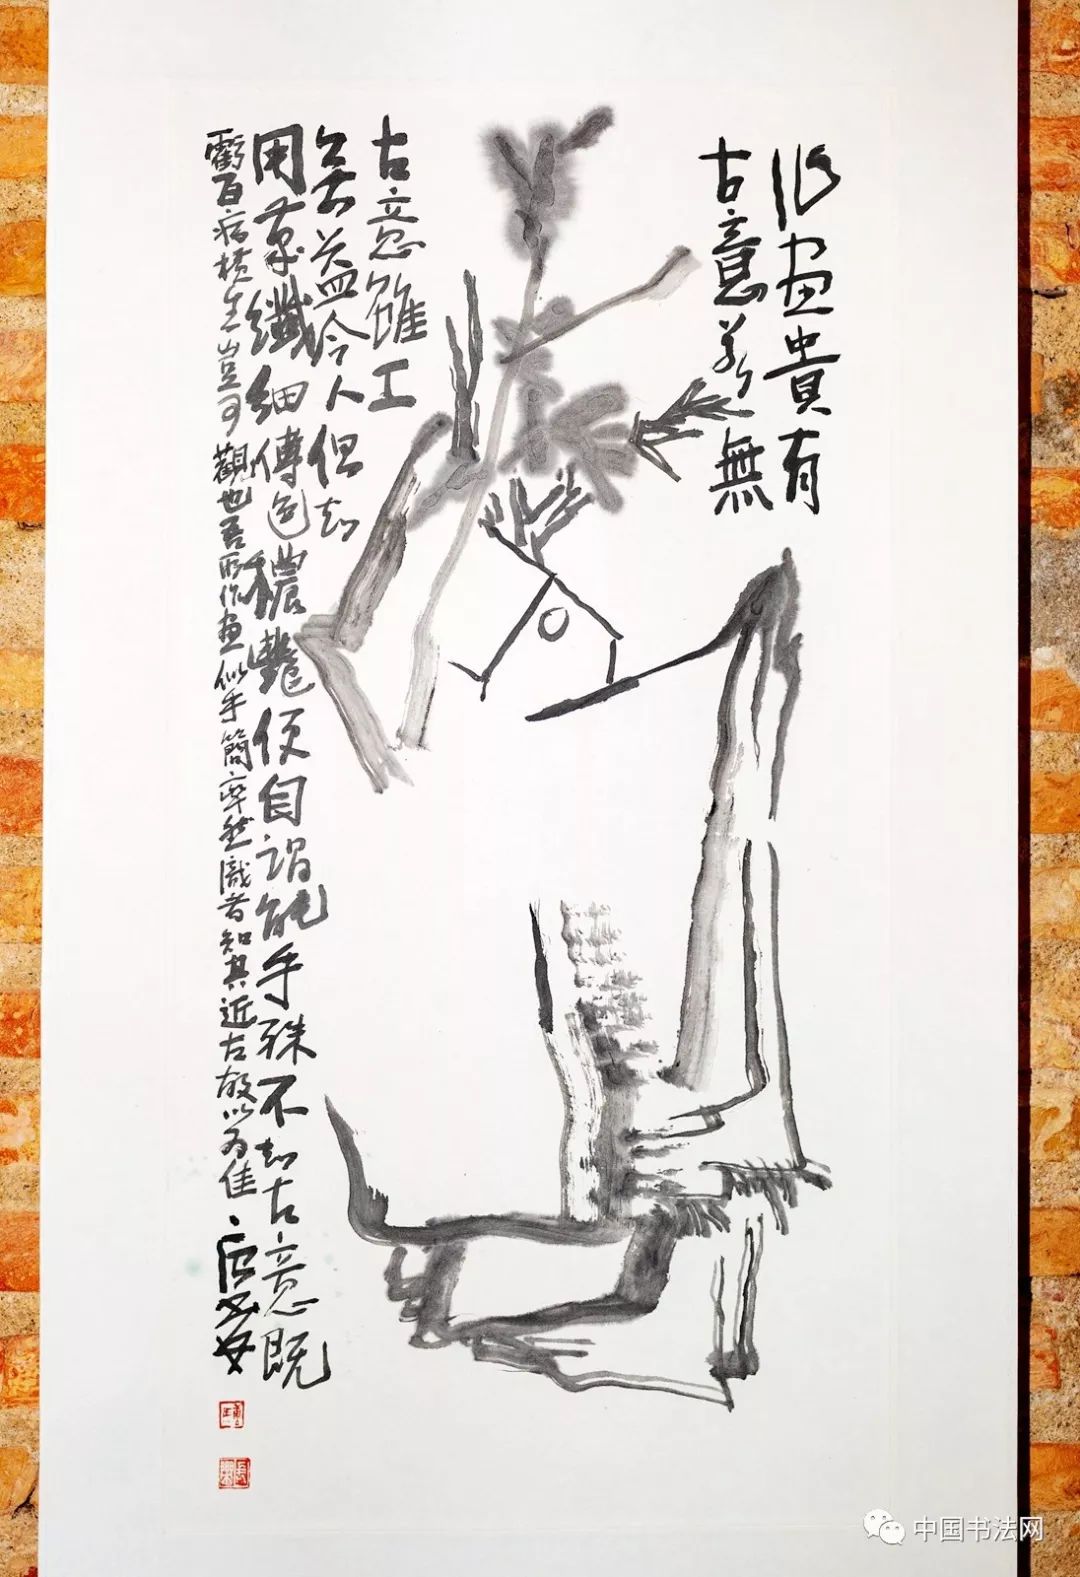 作畫貴有
古意若無
古意雖工
無益今人但知
用筆纖細傅色穠艷便自謂能手殊不知古意既
虧百病橫生豈可觀也吾所作畫似乎簡率然識者知其近古故以為佳
中国书法网